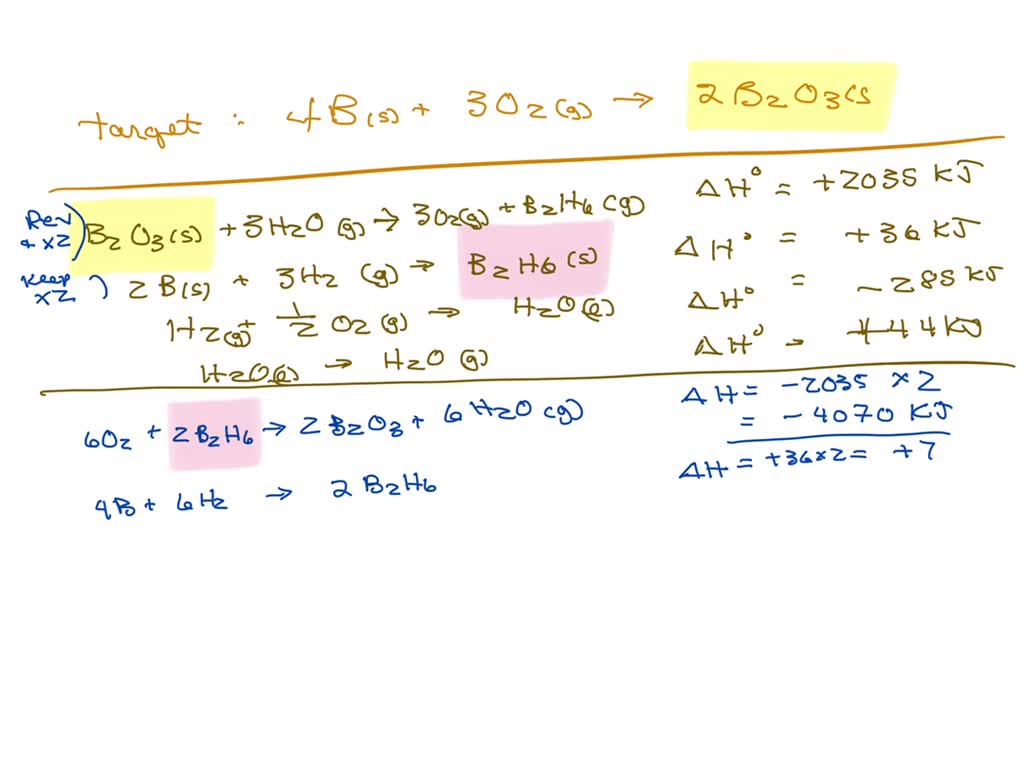 target : 4B(s) + 3O2(g) → 2B2O3(s
Rev & x2) B2O3(s) + 3H2O(g) → 3O2(g) + B2H6(g) ΔH° = +2035 KJ
Keep x2) 2B(s) + 3H2(g) → B2H6(s) ΔH° = +36 KJ
H2(g) + 1/2 O2(g) → H2O(l) ΔH° = -285 KJ
H2O(l) → H2O(g) ΔH° - +44 KJ
6O2 + 2B2H6 → 2B2O3 + 6H2O(g) ΔH = -2035 x2
= -4070 KJ
4B + 6H2 → 2B2H6 ΔH = +36x2 = +7